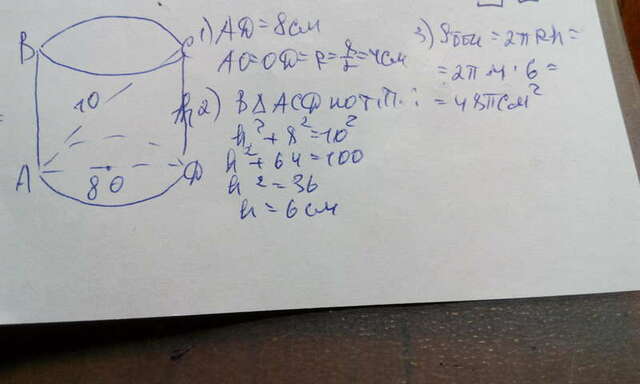 B C
10
h
A 8 O D
1) AD = 8 см
AO = OD = R = 8/2 = 4 см
2) В Δ ACD по т. П.:
h² + 8² = 10²
h² + 64 = 100
h² = 36
h = 6 см
3) Sбок = 2πRh =
= 2π · 4 · 6 =
= 48π см²